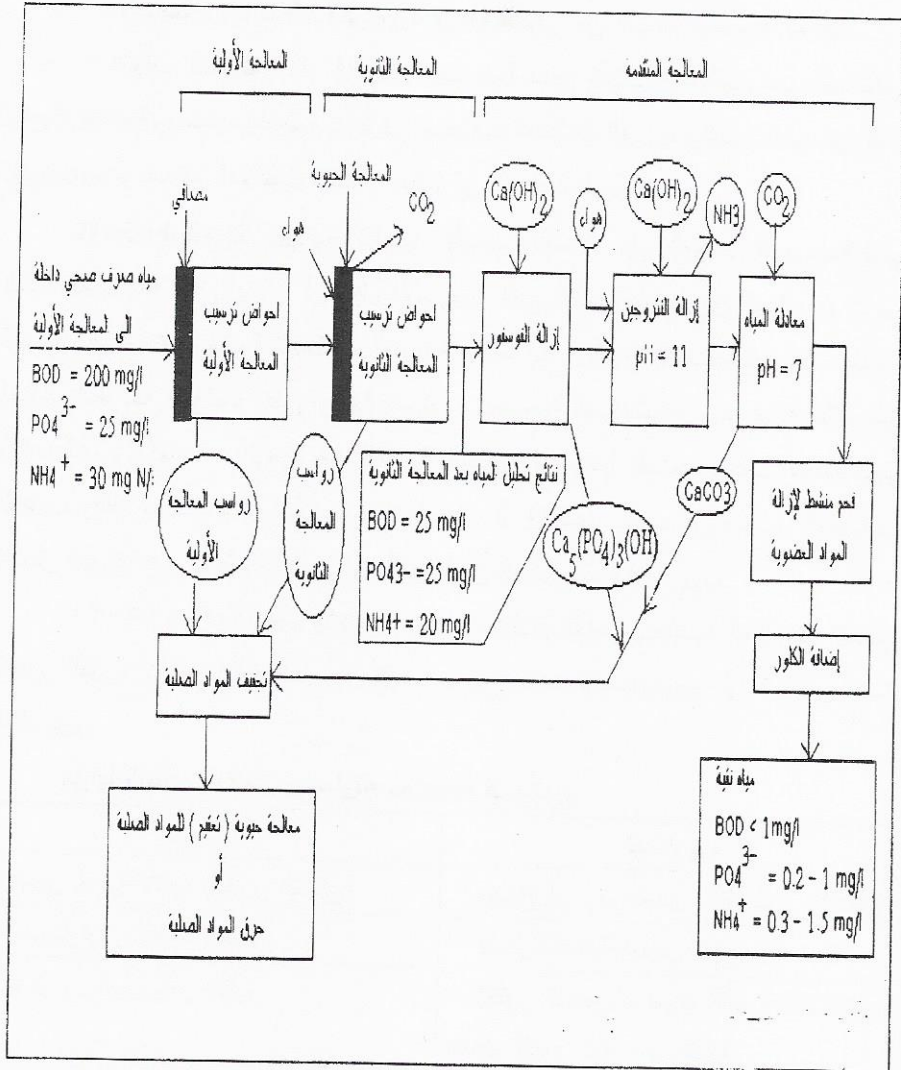 المعالجة الأولية
المعالجة الثانوية
المعالجة المتقدمة
مصافي
هواء
المعالجة الحيوية
CO2
Ca(OH)2
هواء
Ca(OH)2
NH3
CO2
مياه صرف صحي داخلة
الى لمعالجة الأولية
BOD = 200 mg/l
PO4 3- = 25 mg/l
NH4 + = 30 mg N/
احواض ترسيب
المعالجة الأولية
احواض ترسيب
المعالجة الثانوية
إزالة الفوسفور
إزالة النتروجين
pH = 11
معادلة المياه
pH = 7
رواسب المعالجة
الأولية
رواسب
المعالجة
الثانوية
نتائج تحليل المياه بعد المعالجة الثانوية
BOD = 25 mg/l
PO43- = 25 mg/l
NH4+ = 20 mg/l
Ca5(PO4)3(OH)
CaCO3
فحم منشط لإزالة
المواد العضوية
تجفيف المواد الصلبة
إضافة الكلور
معالجة حيوية ( تعقيم ) للمواد الصلبة
أو
حرق المواد الصلبة
مياه نقية
BOD < 1mg/l
PO4 3- = 0.2 - 1 mg/l
NH4+ = 0.3 - 1.5 mg/l